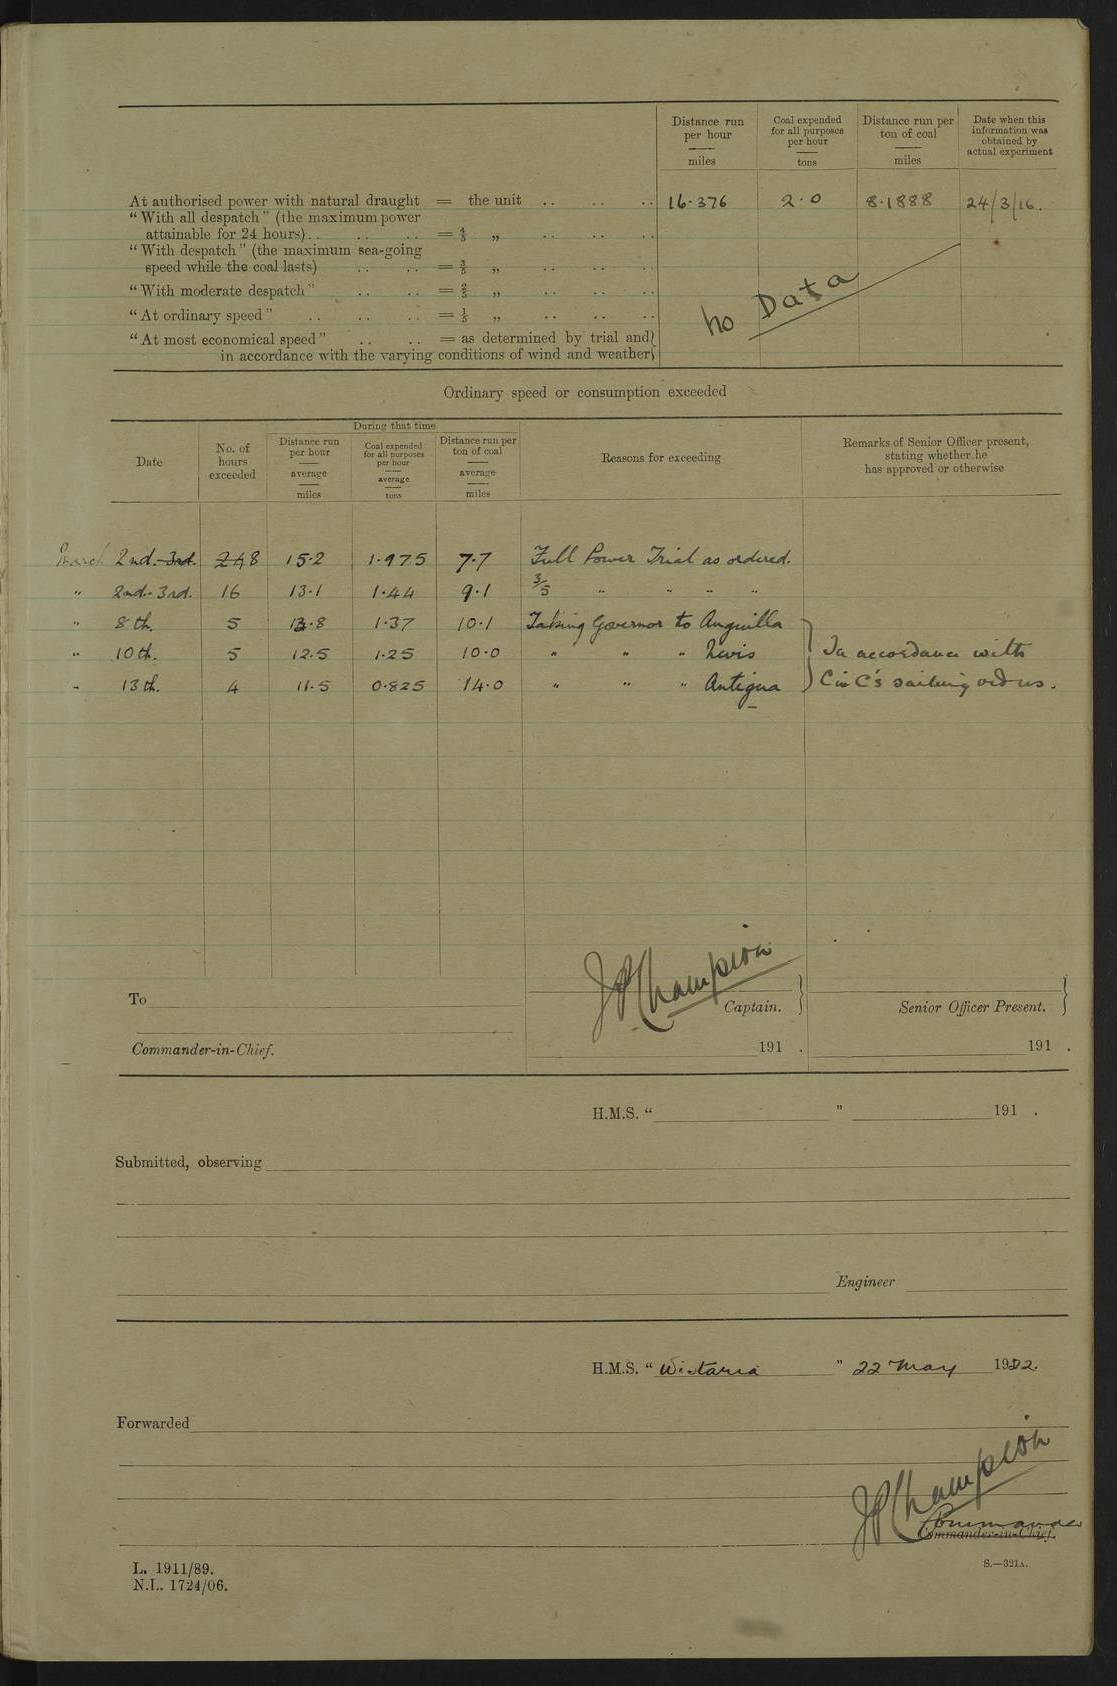 Distance run per hour miles
Coal expended for all purposes per hour tons
Distance run per ton of coal miles
Date when this information was obtained by actual experiment
At authorised power with natural draught = the unit .. .. .. 16·376 2·0 8·1888 24/3/16.
"With all despatch" (the maximum power
attainable for 24 hours) .. .. .. = 4/5 „ .. .. ..
"With despatch" (the maximum sea-going
speed while the coal lasts) .. .. = 3/5 „ .. .. ..
"With moderate despatch" .. .. = 2/5 „ .. .. ..
"At ordinary speed" .. .. .. = 1/5 „ .. .. ..
No Data
"At most economical speed" .. .. = as determined by trial and}
in accordance with the varying conditions of wind and weather}
Ordinary speed or consumption exceeded
During that time
Date
No. of hours exceeded
Distance run per hour average miles
Coal expended for all purposes per hour average tons
Distance run per ton of coal average miles
Reasons for exceeding
Remarks of Senior Officer present, stating whether he has approved or otherwise
March 2nd.-3rd. 24 8 15·2 1·975 7·7 Full Power Trial as ordered.
" 2nd.-3rd. 16 13·1 1·44 9·1 3/5 " " " "
" 8th. 5 13·8 1·37 10·1 Taking Governor to Anguilla
" 10th. 5 12.5 1·25 10·0 " " " Nevis } In accordance with
" 13th. 4 11·5 0·825 14·0 " " " Antigua } C in C's sailing orders.
JPChampion
To
Captain. }
Senior Officer Present. }
Commander-in-Chief.
191 .
191 .
H.M.S. " " 191 .
Submitted, observing
Engineer
H.M.S. "Wistaria" 22 May 1922.
Forwarded
JPChampion
Commander
Commander-in-Chief.
L. 1911/89.
N.L. 1724/06.
S.—321A.